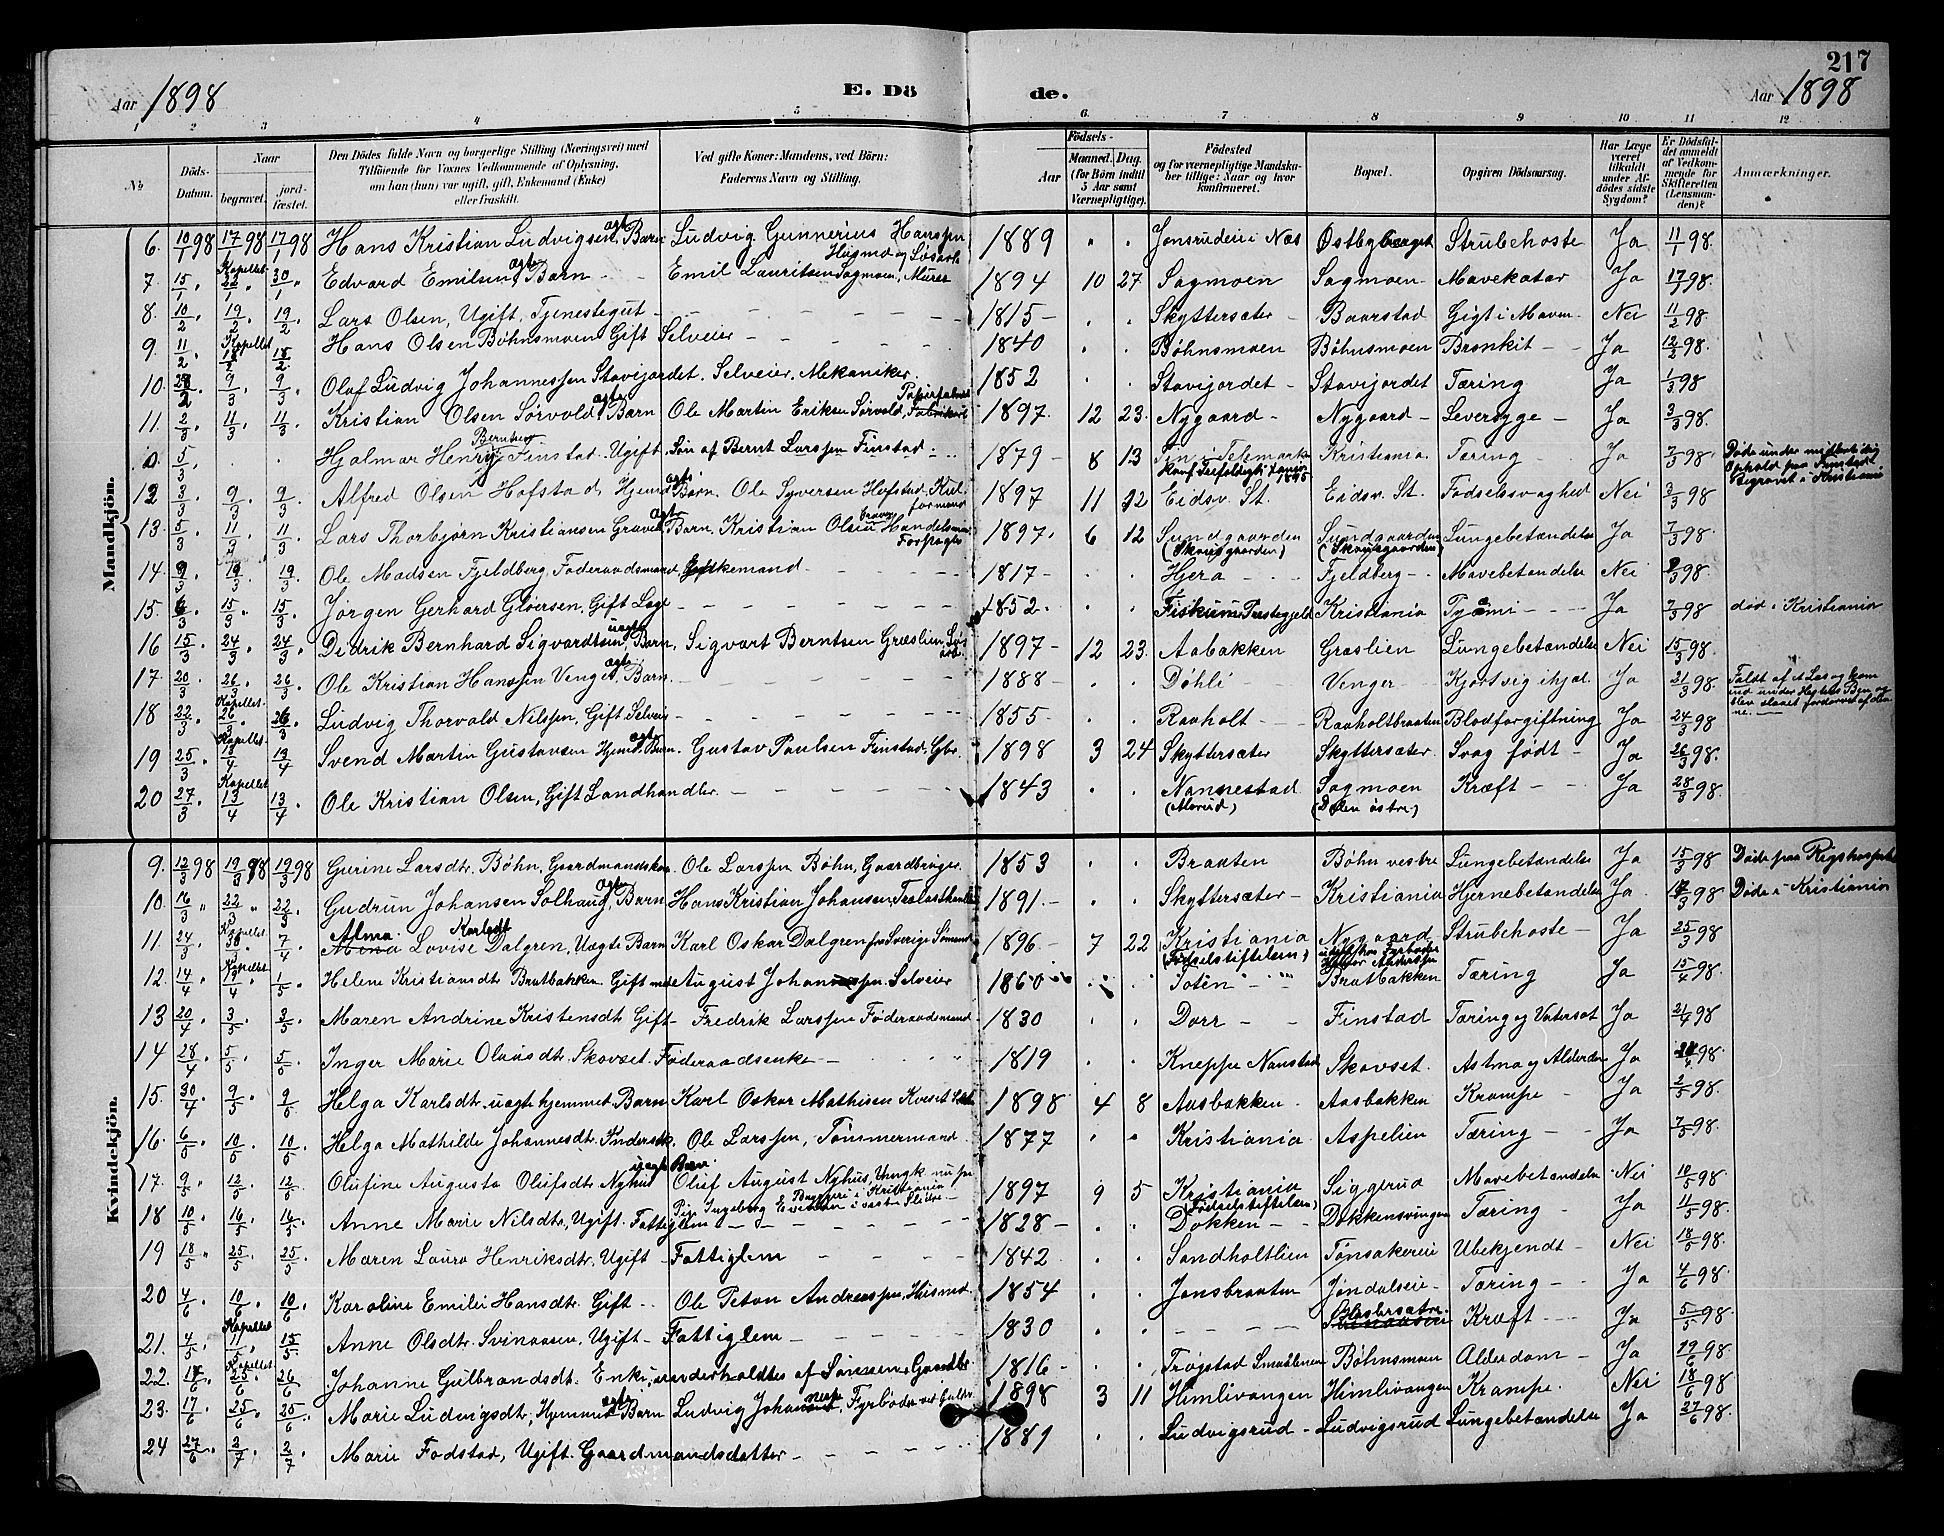 217
Aar 1898 E. Dö de. Aar 1898
1 2 3 4 5 6 7 8 9 10 11 12
№ Döds-Datum. Naar begravet. jordfæstet. Den Dödes fulde Navn og borgerlige Stilling (Næringsvei) med Tilföiende for Voxnes Vedkommende af Oplysning, om han (hun) var ugift, gift, Enkemand (Enke) eller fraskilt. Ved gifte Koner: Mandens, ved Börn: Faderens Navn og Stilling. Födsels- Aar Maaned. Dag. (for Börn indtil 5 Aar samt Værnepligtige). Födested og for værnepligtige Mandskaber tillige: Naar og hvor konfirmeret. Bopæl. Opgiven Dödsaarsag. Har Læge været tilkaldt under Afdödes sidste Sygdom? Er Dödsfaldet anmeldt af Vedkommende for Skifteretten (Lensmanden)? Anmærkninger.
Mandkjön.
6. 10/1 98 17/1 98 17/1 98 Hans Kristian Ludvigsen, ægte Barn Ludvig Gunnerius Hanssen Hagmo og Løsarb 1889 " . Jonsrudeie i Næs Østbybraaget Strubehoste Ja 11/1 98.
7. 15/1 " Kapellet 22/1 " 30/1 " Edvard Emilsen, ægte Barn - - Emil Lauritsen Sagmoen, Murer 1894 10 27 Sagmoen Sagmoen Mavekatar Ja 17/1 98.
8. 10/2 . 19/2 . 19/2 . Lars Olsen, Ugift, Tjenestegut - 1815 - . . Skyttersæter - Baarstad Gigt i Maven Nei 11/2 98.
9. 11/2 . Kapellet 18/2 18/2 . Hans Olsen Bøhnsmoen Gift Selveier - 1840 . . Bøhnsmoen Bøhnsmoen Bronkit - Ja 12/2 98.
10. 28/2 . 9/3 . 9/3 . Olaf Ludvig Johannessen Stavijordet. Selveier. Mekaniker. 1852 . . Stavijordet - Stavijordet Tæring Ja 1/3 98
11. 2/3 . 11/3 . 11/3 . Kristian Olsen Sørvold, ægte Barn Ole Martin Eriksen Sørvold, 1897. 12 23. Nygaard - Nygaard - Leversyge - Ja 3/3 98.
0. 5/3 . . . Hjalmar Henry Berntsen Finstad. Ugift Søn af Bernt Larssen Finstad - 1879 - 8 13 i Telemarken Kristiania. Tæring - Ja 7/3 98. Døde under midlertidig Ophold paa Finstad Begravet i Kristiania
12 3/3 . 9/3 . 9/3 . Alfred Olsen Hofstad, Hjemd ægte Barn. Ole Syversen Hofstad, Kul formand 1897 11 22 Eidsv. St. Eidsv. St. Fødselssvaghed Nei 3/3 98
13. 5/3 . 11/3 . 11/3 . Lars Thorbjørn Kristiansen Graver ægte Barn. Kristian Olsen Graver Handelsmand 1897. 6 12 Sundgaarden (Skougaarden) Sundgaarden (Skougaarden) Lungebetændelse Ja 7/3 98.
14. 9/3 . 19/3 . 19/3 . Ole Madsen Fjeldberg, Føderaadsmand Enkemand 1817 - . . Hjera - Fjeldberg - Mavebetændelse Nei 9/3 98.
15. 6/3 . 15/3 . 15/3 . Jørgen Gerhard Gløersen, Gift Læge 1852. . . Fiskum Præstegjeld Kristiania Ja 7/3 98 død i Kristiania
16 15/3 . 24/3 . 24/3 . Didrik Bernhard Sigvardtsen, uægte Barn, Sigvart Berntsen Græslien, 1897 - 12 23. Aabakken Græslien Lungebetændelse Nei 15/3 98.
17. 20/3 . 26/3 . 26/3 . Ole Kristian Hanssen Venger, ægte Barn. 1888 - . . Døhli - Venger - Kjørt sig ihjel. Ja 21/3 98. Faldt af et Læs og kom ind under Hestens Ben og blev slaaet fordærvet af denne.
18 22/3 . Kapellet 26/3 . 26/3 . Ludvig Thorvald Nilssen, Gift Selveier 1855 - . . Raaholt - Raaholtbraaten Blodforgiftning Ja 24/3 98
19 25/3 . Kapellet 13/4 13/4 Svend Martin Gustavsen Hjemd. ægte Barn. Gustav Paulsen Finstad, Gbr. 1898 3 24 Skyttersæter Skyttersæter Svag født - Ja 26/3 98.
20 27/3 . Kapellet 13/4 13/4 . Ole Kristian Olsen, Gift Landhandler. 1843 . . Nannestad (Morud) Sagmoen (Dalen østre) Kræft - Ja 28/3 98.
Kvindekjön.
9. 12/3 98 19/3 98 19/3 98 Gurine Larsdtr. Bøhn, Gaardmandskone Ole Larssen Bøhn, Gaardbruger. 1853 . . Braaten Bøhn vestre Lungebetændelse Ja 15/3 98 Døde paa Rigshospitalet
10. 16/3 " 22/3 " 22/3 . Gudrun Johansen Solhaug, ægte Barn Hans Kristian Johansen, Trælasthandler 1891. - . . Skyttersæter - Kristiania Hjernebetændelse Ja. 17/3 98 Døde i Kristiania
11. 24/3 . Kapellet 30/3 . 7/4 . Alma Lovise Karlsdtr Dalgren, Uægte Barn Karl Oskar Dalgren fra Sverige Sømand 1896. - 7 22 Kristiania (Fødselstiftelsen) Nygaard hos Fyrbøder Halvor Andersen Strubehoste - Ja 25/3 98
12. 14/4 . Kapellet 19/4 . 1/5 . Helene Kristiansdtr. Bratbakken Gift med August Johannessen. Selveier 1860 . . Toten Bratbakken Tæring Ja 15/4 98.
13 20/4 . 3/5 . 3/5 . Maren Andrine Kristensdtr Gift - Fredrik Larssen Føderaadsmand 1830 . . Dorr - - Finstad Tæring og Vatersot Ja 21/4 98
14 28/4 . 5/5 . 5/5 . Inger Marie Olausdtr. Skovset. Føderaadsenke - 1819 . . Kneppe Nanstad Skovset. Astma og Alderdom Ja 98.
15. 30/4 . 9/5 . 9/5 Helga Karlsdtr. uægte hjemmed. Barn Karl Oskar Mathisen Kveset 1898 4 8 Aasbakken. Aasbakken Krampe - Ja 2/5 98.
16. 6/5 . 10/5 . 10/5 . Helga Mathilde Johannesdtr. Ole Larssen, Tømmermand. 1877 . . Kristiania. Aspelien Tæring - Ja 7/5 98.
17. 9/5 . 12/5 . 12/5 . Olufine Augusta Olufsdtr. Nyhus uægte Barn. Oluf August Nyhus, Ungk. nu paa Byggeri i Kristiania Pige Ingeborg Evensen i vestre Slidre - 1897 9 5 Kristiania (Fødselstiftelsen) Siggerud Mavebetændelse Nei 10/5 98.
18 10/5 . 16/5 . 16/5 . Anne Marie Nilsdtr, Ugift. Fattiglem 1828 - . . Dokken - Dokkensvingen Tæring - Ja 11/5 98.
19 18/5 " 25/5 . 25/5 . Maren Laura Henriksdtr. Ugift - Fattiglem 1842. . . Sandholtlien Tønsakereie Ubekjendt - Nei 18/5 98.
20 4/6 . 10/6 . 10/6 . Karoline Emilie Hansdtr. Gift - Ole Peton Andreassen, Husmd. 1854 . . Jonsbraaten Jøndalseie - Tæring - Ja 4/6 98.
21. 4/5 . Kapellet 11/5 . 15/5 . Anne Olsdtr. Svinaasen, Ugift - Fattiglem - 1830 . . Kræft - Ja 5/5 98.
22. 18/6 . Kapellet 25/6 . 26/6 . Johanne Gulbrandsdtr. Enke, underholdtes af Sønnen, Gaardbr 1816 - . . Trøgstad Smaalenene Bøhnsmoen Alderdom - Ja 19/6 98
23. 17/6 . 25/6 . 25/6 . Marie Ludvigsdtr, Hjemmed. ægte Barn Ludvig Johannessen, Fyrbøder 1898 3 11 Himlivangen Himlivangen Krampe. Nei 18/6 98
24 27/6 . 2/7 . 2/7 . Marie Fodstad, Ugift. Gaardmandsdatter - 1881 . . Ludvigsrud - Ludvigsrud Lungebetændelse Ja 27/6 98.